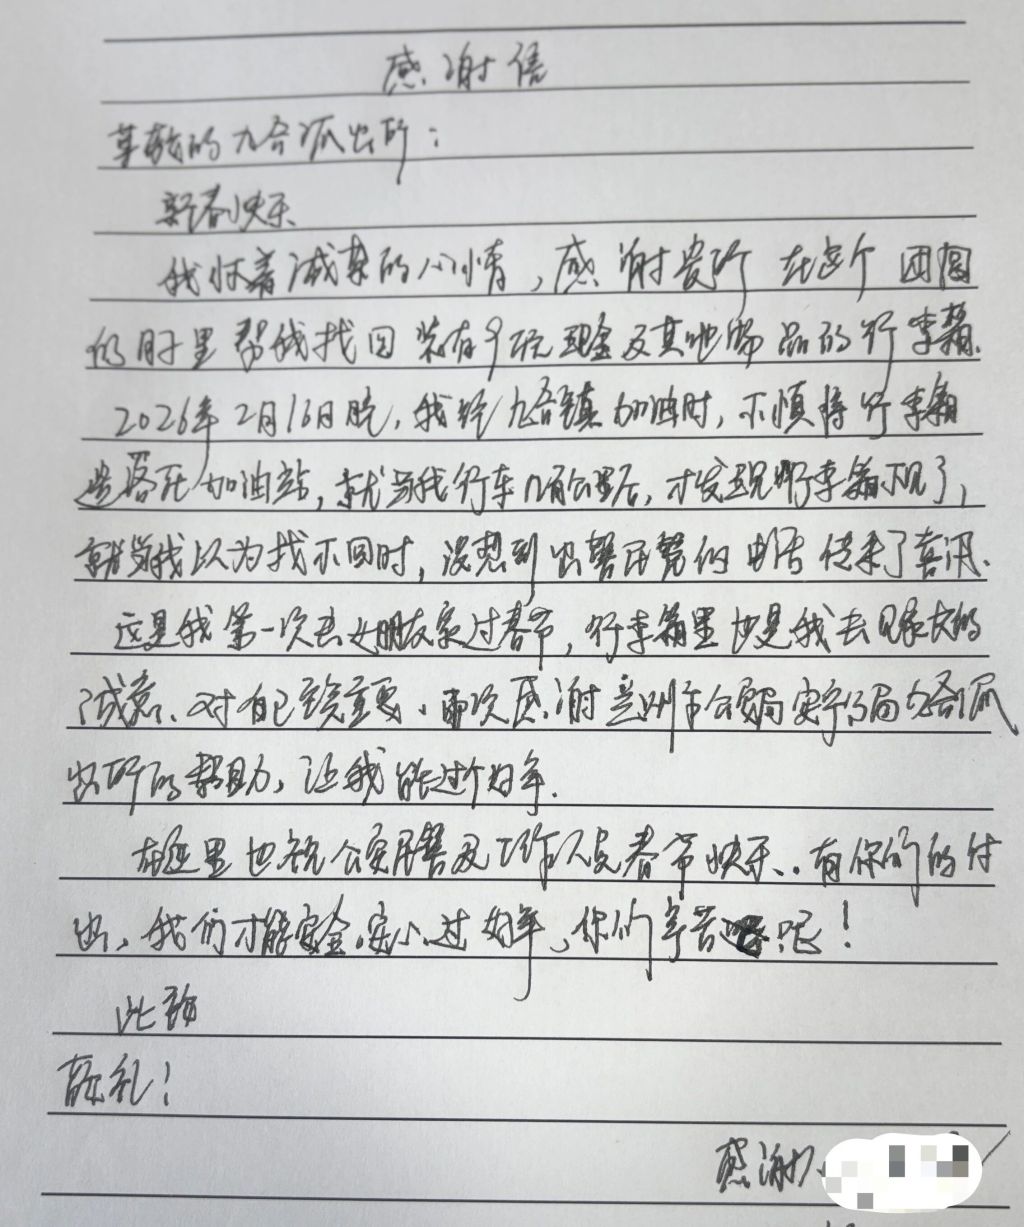 感谢信
尊敬的九合派出所：
新春快乐
我怀着诚挚的心情，感谢贵所在这个团圆
的日子里帮我找回装有9万元现金及其他物品的行李箱.
2026年2月16日晚，我经九合镇加油时，不慎将行李箱
遗落在加油站，就当我行车几百公里后，才发现行李箱不见了，
就当我以为找不回时，没想到出警民警的电话传来了喜讯.
这是我第一次去女朋友家过春节，行李箱里也是我去见家长的
诚意、对自己至关重要、再次感谢兰州市公安局安宁分局九合派
出所的帮助，让我能过个好年.
在这里也祝公安民警及工作人员春节快乐、.有你们的付
出，我们才能安全安心过好年、你们辛苦呢！
此致
敬礼！
感谢人